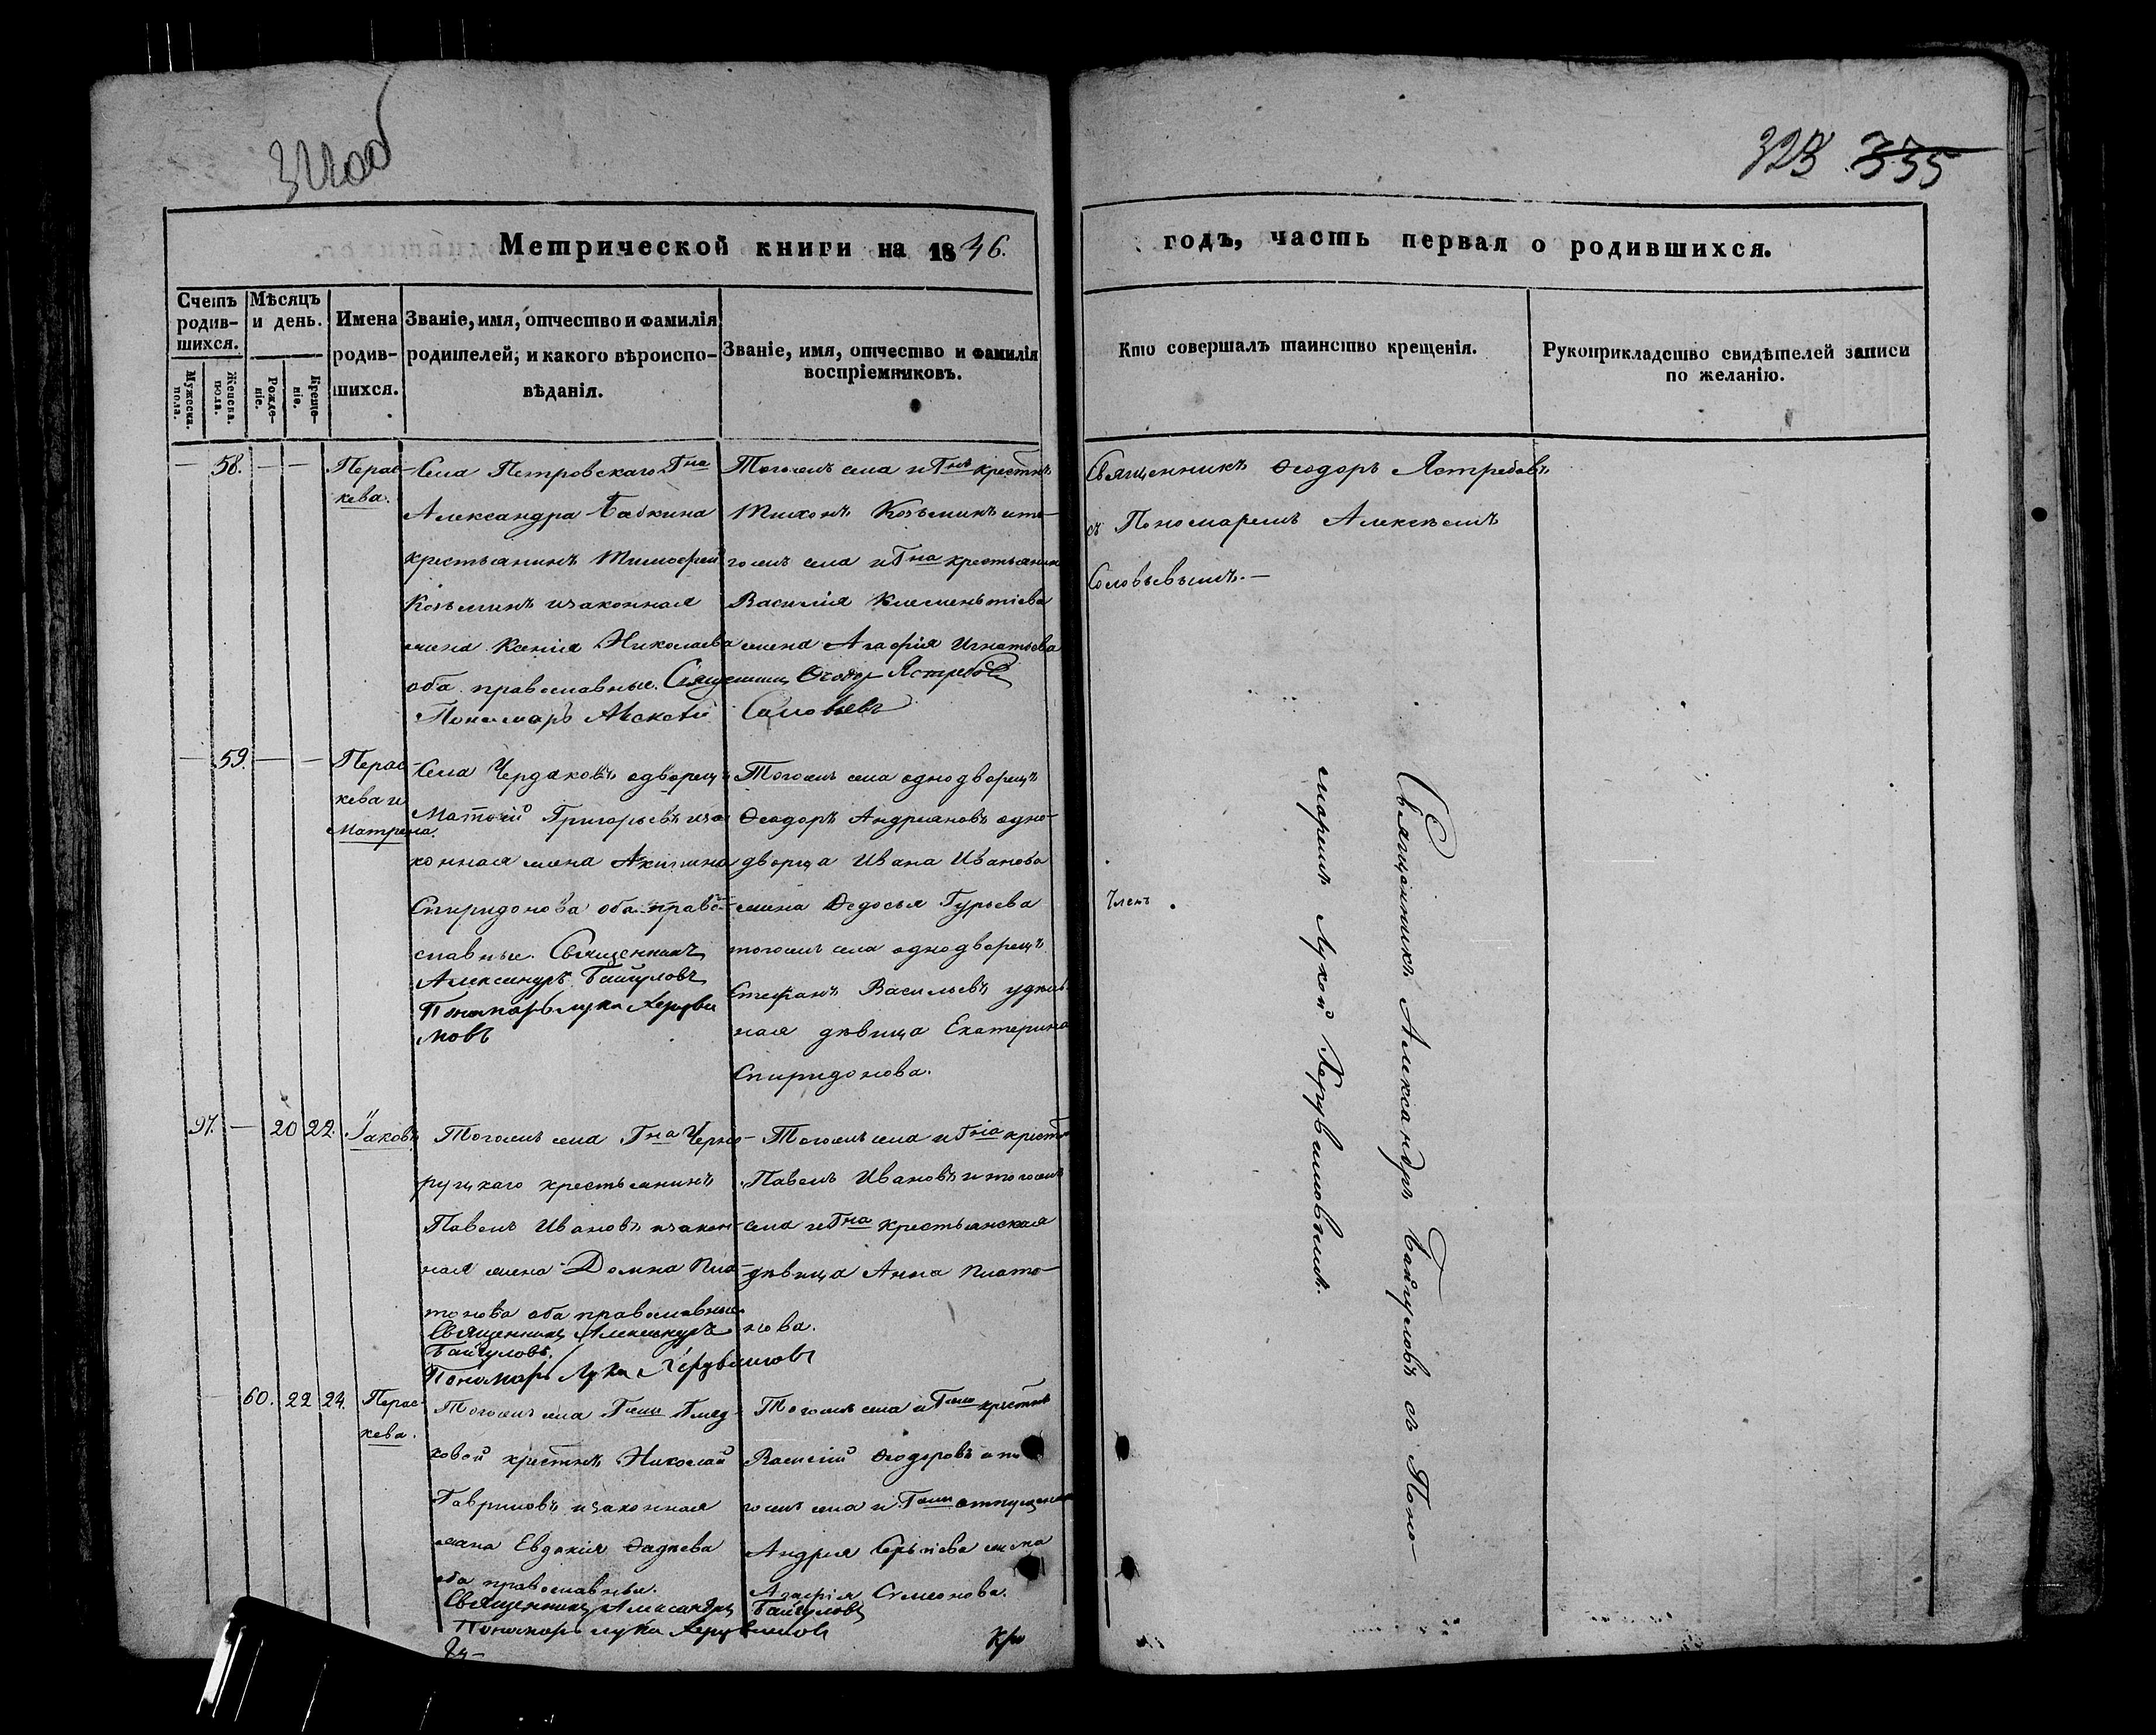 323 335
Метрической книги на 1846.
годъ, часть первая о родившихся.
Счетъ родив-
шихся.
Мужеска. пола.
Женска. пола.
Мѣсяцъ
и день.
Рожде-
ніе.
Креще-
ніе.
Имена
родив-
шихся.
Званіе, имя, отчество и фамилія
родителей, и какого вѣроиспо-
вѣданія.
Званіе, имя, отчество и фамилія
воспріемниковъ.
Кто совершалъ таинство крещенія.
Рукоприкладство свидѣтелей записи
по желанію.
— 58. — —
Парас-
кева.
Села Петровскаго Гна
Александра Бабкина
крестьянинъ Тимофей
Козьминъ и законная
жена Ксенія Николаева
оба православные. Священникъ Ѳеодоръ Ястребовъ
Пономарь Алексѣй Соловьевъ
Тогожъ села и Гна крестнъ
Тихонъ Козьминъ и то-
гожъ села и Гна крестьянина
Василія Клементіева
жена Агафія Игнатьева
Священникъ Ѳеодоръ Ястребовъ
съ Пономаремъ Алексѣемъ
Соловьевымъ. —
— 59. — —
Перас-
кева и
Матрена.
Села Чердаковъ одворецъ
Матѳей Григорьевъ и за-
конная жена Акилина
Спиридонова оба право-
славные. Священникъ
Александръ Байгуловъ
Пономарь Лука Херуви
мовъ
Тогожъ села однодворецъ
Ѳеодоръ Андреяновъ одно-
дворца Ивана Иванова
жена Ѳедосья Гурьева
тогожъ села однодворецъ
Стефанъ Васильевъ
дѣвица Екатерина
Спиридонова.
Членъ
Священникъ Александръ Байгуловъ съ Поно-
маремъ Лукой Херувимовымъ.
97. — 20 22.
Іаковъ
Тогожъ села Гна Черно-
руцкаго крестьянинъ
Павелъ Ивановъ и закон-
ная жена Домна Пла-
тонова оба православные.
Священникъ Александръ
Байгуловъ.
Пономарь Лука Херувимовъ
Тогожъ села и Гна крестнъ
Павелъ Ивановъ и тогожъ
села и Гна крестьянская
дѣвица Анна Плато-
нова.
— 60. 22 24.
Перас-
кева.
Тогожъ села Гжи
ковой крестнъ Николай
Гавриловъ и законная
жена Евдокія Ѳадѣева
оба православные.
Священникъ Александръ Байгуловъ
Пономарь Лука Херувимовъ
Тогожъ села и Гжи крестнъ
Василій Ѳеодоровъ и то
гожъ села и Гжи
Андрея Сергѣева жена
Агафія Симеонова.